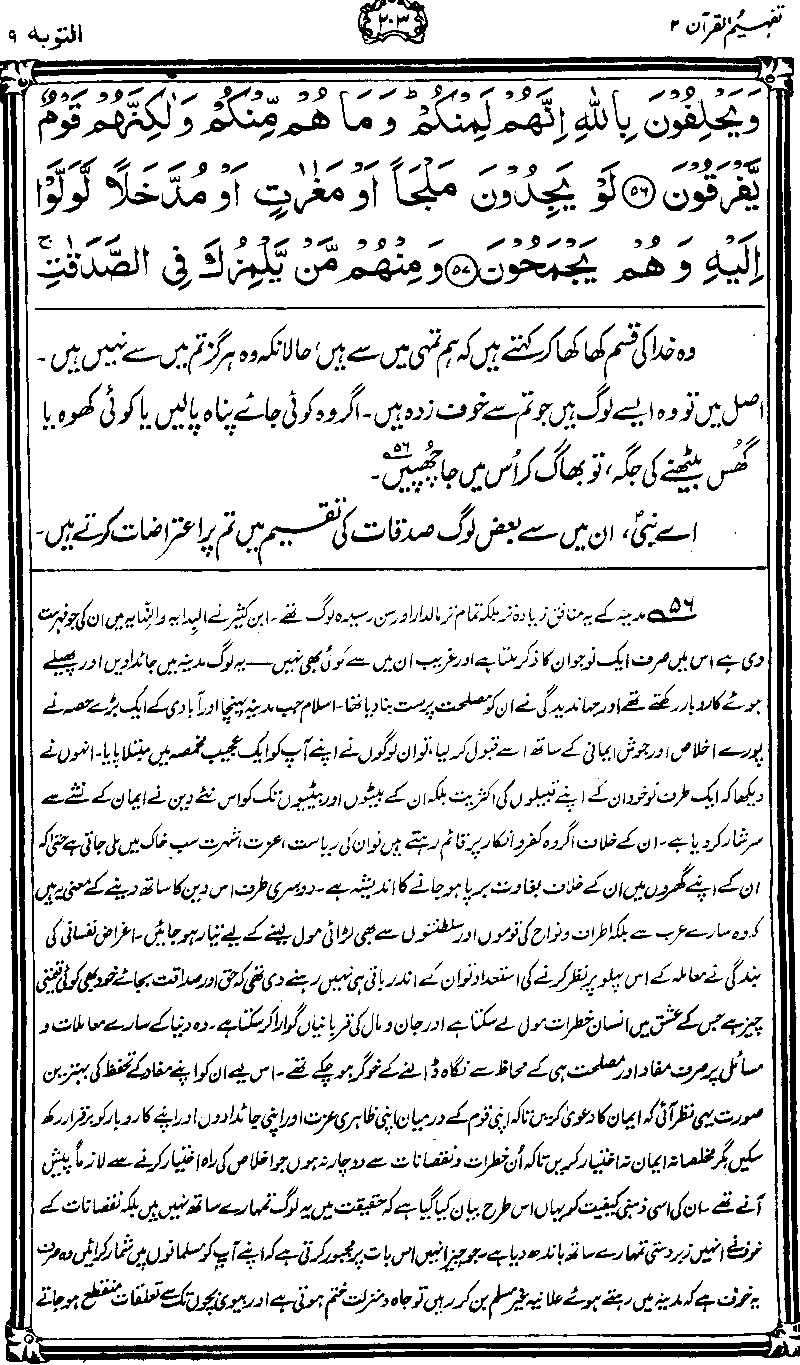 تفہیم القرآن ۲
۲۰۳
التوبہ ۹
وَيَحْلِفُوْنَ بِاللّٰهِ اِنَّهُمْ لَمِنْكُمْ ؕ وَمَا هُمْ مِّنْكُمْ وَلٰكِنَّهُمْ قَوْمٌ
يَّفْرَقُوْنَ ﴿۵۶﴾ لَوْ يَجِدُوْنَ مَلْجَاً اَوْ مَغٰرٰتٍ اَوْ مُدَّخَلًا لَّوَلَّوْا
اِلَيْهِ وَهُمْ يَجْمَحُوْنَ ﴿۵۷﴾ وَمِنْهُمْ مَّنْ يَّلْمِزُكَ فِى الصَّدَقٰتِ ۚ
وہ خدا کی قسم کھا کھا کر کہتے ہیں کہ ہم تمہی میں سے ہیں، حالانکہ وہ ہرگز تم میں سے نہیں ہیں۔
اصل میں تو وہ ایسے لوگ ہیں جو تم سے خوف زدہ ہیں۔ اگر وہ کوئی جائے پناہ پالیں یا کوئی کھوہ یا
گھُس بیٹھنے کی جگہ، تو بھاگ کر اُس میں جا چھُپیں۵۶۔
اے نبیؐ، ان میں سے بعض لوگ صدقات کی تقسیم میں تم پر اعتراضات کرتے ہیں۔
۵۶ مدینہ کے یہ منافق زیادہ تر بلکہ تمام تر مالدار اور سن رسیدہ لوگ تھے۔ ابن کثیر نے البدایہ والنہایہ میں ان کی جو فہرست
دی ہے اس میں صرف ایک نوجوان کا ذکر ملتا ہے اور غریب ان میں سے کوئی بھی نہیں — یہ لوگ مدینہ میں جائدادیں اور پھیلے
ہوئے کاروبار رکھتے تھے اور جہاندیدگی نے ان کو مصلحت پرست بنا دیا تھا۔ اسلام جب مدینہ پہنچا اور آبادی کے ایک بڑے حصہ نے
پورے اخلاص اور جوش ایمانی کے ساتھ اسے قبول کر لیا، تو ان لوگوں نے اپنے آپ کو ایک عجیب مخمصہ میں مبتلا پایا۔ انہوں نے
دیکھا کہ ایک طرف تو خود ان کے اپنے قبیلوں کی اکثریت بلکہ ان کے بیٹوں اور بیٹیوں تک کو اس نئے دین نے ایمان کے نشے سے
سرشار کر دیا ہے۔ ان کے خلاف اگر وہ کفر و انکار پر قائم رہتے ہیں تو ان کی ریاست، عزت، شہرت سب خاک میں ملی جاتی ہے حتیٰ کہ
ان کے اپنے گھروں میں ان کے خلاف بغاوت برپا ہو جانے کا اندیشہ ہے۔ دوسری طرف اس دین کا ساتھ دینے کے معنی یہ ہیں
کہ وہ سارے عرب سے بلکہ اطراف و نواح کی قوموں اور سلطنتوں سے بھی لڑائی مول لینے کے لیے تیار ہو جائیں۔ اغراض نفسانی کی
بندگی نے معاملہ کے اس پہلو پر نظر کرنے کی استعداد تو ان کے اندر باقی ہی نہیں رہنے دی تھی کہ حق اور صداقت بجائے خود بھی کوئی قیمتی
چیز ہے جس کے عشق میں انسان خطرات مول لے سکتا ہے اور جان و مال کی قربانیاں گوارا کر سکتا ہے۔ وہ دنیا کے سارے معاملات و
مسائل پر صرف مفاد اور مصلحت ہی کے لحاظ سے نگاہ ڈالنے کے خوگر ہو چکے تھے۔ اس لیے ان کو اپنے مفاد کے تحفظ کی بہترین
صورت یہی نظر آئی کہ ایمان کا دعویٰ کریں تاکہ اپنی قوم کے درمیان اپنی ظاہری عزت اور اپنی جائدادوں اور اپنے کاروبار کو برقرار رکھ
سکیں مگر مخلصانہ ایمان نہ اختیار کریں تاکہ اُن خطرات و نقصانات سے دوچار نہ ہوں جو اخلاص کی راہ اختیار کرنے سے لازماً پیش
آنے تھے۔ ان کی اسی ذہنی کیفیت کو یہاں اس طرح بیان کیا گیا ہے کہ حقیقت میں یہ لوگ تمہارے ساتھ نہیں ہیں بلکہ نقصانات کے
خوف نے انہیں زبردستی تمہارے ساتھ باندھ دیا ہے۔ جو چیز انہیں اس بات پر مجبور کرتی ہے کہ اپنے آپ کو مسلمانوں میں شمار کرائیں وہ صرف
یہ خوف ہے کہ مدینہ میں رہتے ہوئے علانیہ غیر مسلم بن کر رہیں تو جاہ و منزلت ختم ہوتی ہے اور بیوی بچوں تک سے تعلقات منقطع ہو جاتے